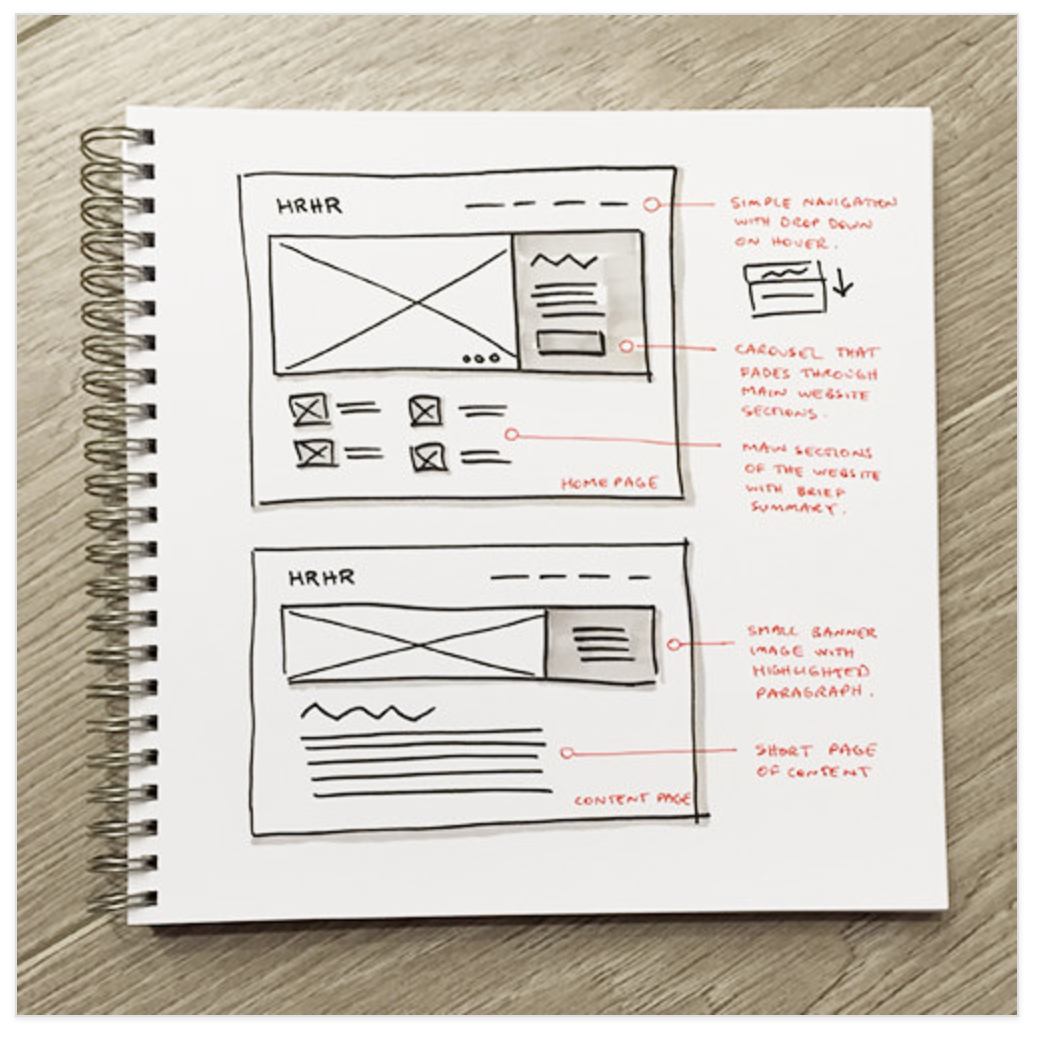 HRHR
SIMPLE NAVIGATION
WITH DROP DOWN
ON HOVER.
CAROUSEL THAT
FADES THROUGH
MAIN WEBSITE
SECTIONS.
MAIN SECTIONS
OF THE WEBSITE
WITH BRIEF
SUMMARY.
HOME PAGE
HRHR
SMALL BANNER
IMAGE WITH
HIGHLIGHTED
PARAGRAPH.
SHORT PAGE
OF CONTENT
CONTENT PAGE